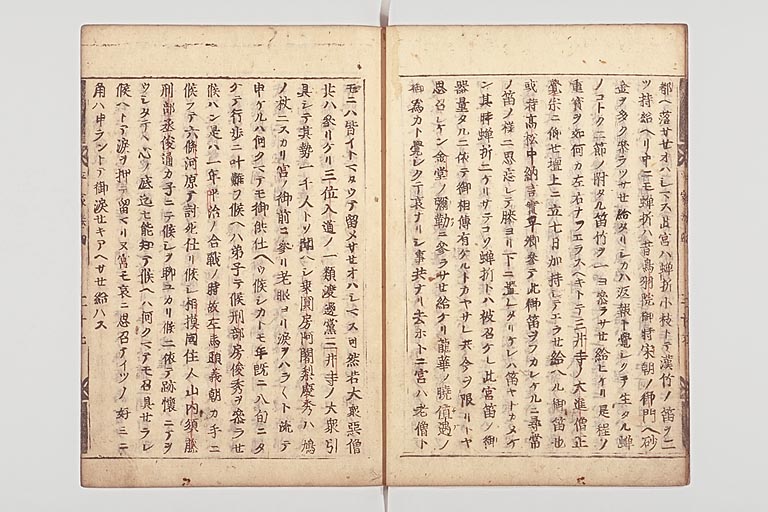 都ヘ落サセオハシマス此宮ハ蝉折小枝トテ漢竹ノ笛ヲ二
ツ持給ヘリ中ニモ蝉折ハ昔鳥羽院御時宋朝ノ御門ヘ砂
金ヲ多ク参ラツサセ給タリシカハ返報ト覺シクテ生タル蝉
ノコトク二節ノ附タル笛竹ヲ一ヨ参ラサセ給ヒケリ是程ノ
重寶ヲ如何カ左右ナフエラスヘキトテ三井寺ノ大進僧正
覺宗ニ仰セ壇上ニ立七日加持シテエラセ給ヘル御笛也
或時高松中納言實平卿参テ此御笛ヲフカレケルニ尋常
ノ笛ノ程ニ思忘レテ膝ヨリ下ニ置レタリケレハ笛ヤトカメケ
ン其時蝉折ニケリサテコソ蝉折トハ被召ケレ此宮笛ノ御
器量タルニ依テ御相傳有ケルトカヤサレ共今ヲ限リトヤ
思召レケン金堂ノ弥勒ニ参ラサセ給ケリ龍華ノ曉値遇ノ
御為カト覺シクテ哀ナリシ事共ナリ去ホトニ宮ハ老僧ト
モニハ皆イトマタウテ留メサセオハシマス可然若大衆悪僧
北ハ参リケリ三位入道ノ一類渡邊黨三井寺ノ大衆引
具シテ其勢一千人トソ聞ヘシ乗圓房阿闍梨慶秀ハ鳩
ノ杖ニスカリ宮ノ御前ニ参リ老眼ヨリ涙ヲハラヽト流テ
申ケルハ何クマテモ御供仕ヘウ候シカトモ年既ニ八旬ニタ
ケテ行歩ニ叶難ヲ候ヘハ弟子テ候刑部房俊秀ヲ参ラセ
候ハン是ハ一年平治ノ合戰ノ時故左馬頭義朝カ手ニ
候フテ六條河原テ討死仕リ候シ相摸國住人山内須藤
刑部丞俊通カ子ニテ候シヲ聊ユカリ候ニ依テ跡懐ニテヲ
ウシタテヽ心ノ底迄モ能知テ候ヘハ何クマテモ召具セラレ
候ヘトテ涙ヲ押テ留ヘリヌ宮モ哀ニ思召テイツノ好ミニ
角ハ申ラントテ御涙セキアヘサセ給ハス